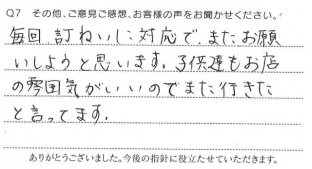 Q7 その他、ご意見ご感想、お客様の声をお聞かせください。
毎回 訂ねいに対応で、またお願
いしようと思います。子供達もお店
の雰囲気がいいのでまた行きた
と言ってます。
ありがとうございました。今後の指針に役立たせていただきます。